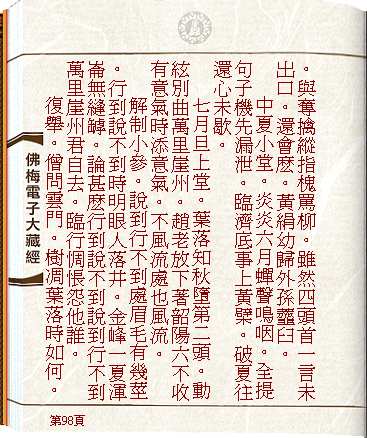 。與奪擒縱指槐罵柳。雖然四頭首一言未
出口。還會麼。黃絹幼婦外孫虀臼。
中夏小堂。炎炎六月蟬聲鳴咽。全提
句子機先漏泄。臨濟底事上黃檗。破夏往
還心未歇。
七月旦上堂。葉落知秋墮第二頭。動
絃別曲萬里崖州。趙老放下著韶陽六不收
有意氣時添意氣。不風流處也風流。
解制小參。說到行不到處眉毛有幾莖
。行到說不到時明眼人落井。金峰一夏渾
崙無縫罅。論甚麼行到說不到說到行不到
萬里崖州君自去。臨行惆悵怨他誰。
復舉。僧問雲門。樹凋葉落時如何。
佛梅電子大藏經
第98頁